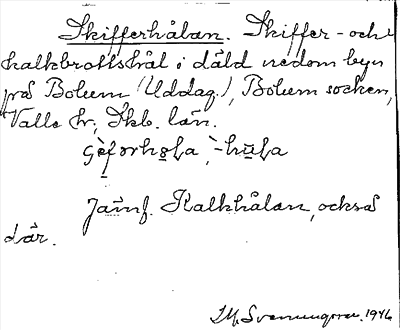 Skifferhålan. Skiffer- och
kalkbrottshål i däld nedom byn
på Bolum (Uddag.), Bolum socken,
Valle hr, Skb. län.
-hu̠la
Jämf. Kalkhålan, också
där.
Svenungsson. 1946